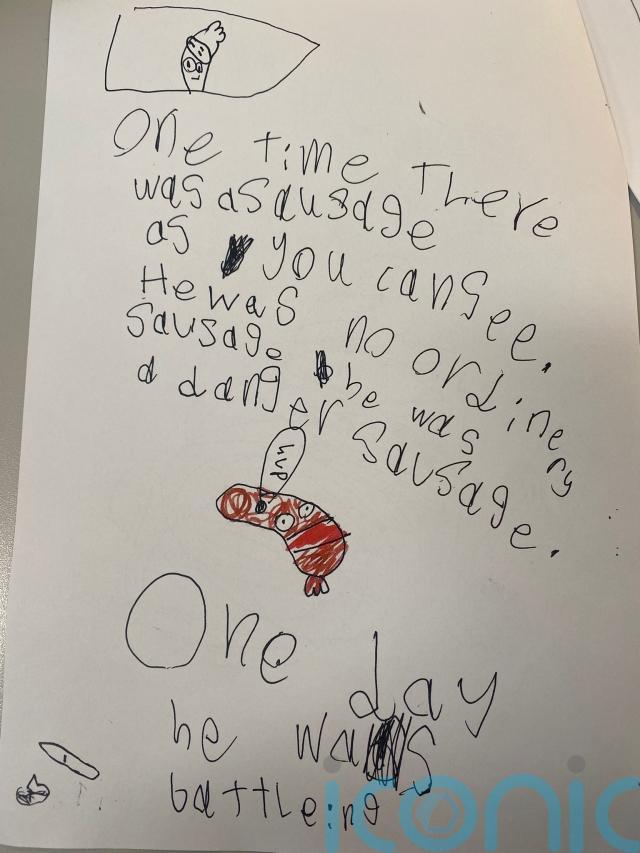 One time there
was a sausage
as you can see.
He was no ordinery
sausage he was
a danger sausage.
WP
One day
he was
battleing
iconic